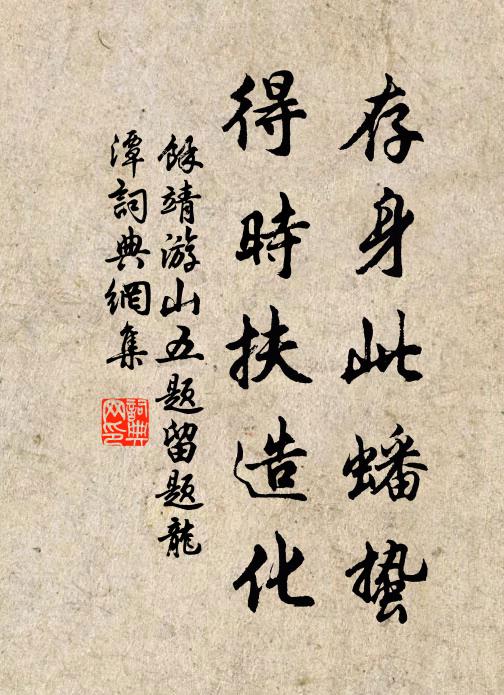 存身此蟠蛰
得時扶造化
餘靖游山五题留题龍
潭詞典網集
詞典
网印